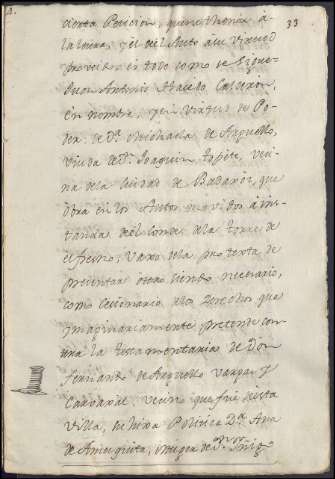 33
cienta Peticion, que se
la letra, y el del Auto a su virtud
proveido es todo como se sigue
Don Antonio Macedo Calderon,
en nombre, y en virtud de Po-
der de D.ª Michaela de Arguello,
viuda de D.n Joaquin Topete, veci-
na de la Ciudad de Badaxoz, que
obra en los Autos movidos a ins-
tancia del Conde de la Torre de
el fresno, vaxo de la protexta de
presentar otro siendo necesario,
como Cesionario de los derechos que
imaginariamente pretende con-
tra la testamentaria de Don
fernando de Arguello Vargas y
Carvaxal, vecino que fue de esta
Villa, su hixa Politica D.ª Ana
de Amezquita, muger de D.n